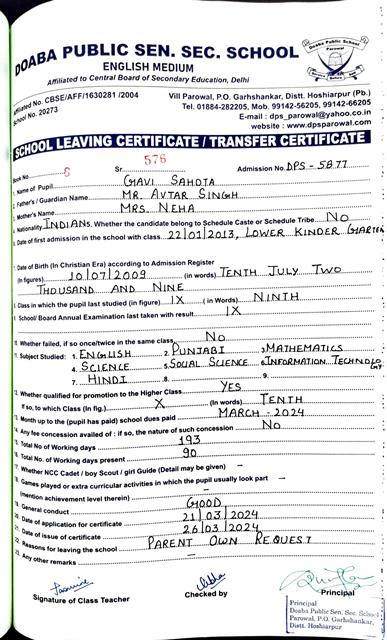 DOABA PUBLIC SEN. SEC. SCHOOL
ENGLISH MEDIUM
Affiliated to Central Board of Secondary Education, Delhi
Affiliated No. CBSE/AFF/1630281 /2004
School No. 20273
Vill Parowal, P.O. Garhshankar, Distt. Hoshiarpur (Pb.)
Tel. 01884-282205, Mob. 99142-56205, 99142-66205
E-mail : dps_parowal@yahoo.co.in
website : www.dpsparowal.com
SCHOOL LEAVING CERTIFICATE / TRANSFER CERTIFICATE
Book No. 6 Sr. 576 Admission No. DPS - 5877
1. Name of Pupil GAVI SAHOTA
2. Father's / Guardian Name MR. AVTAR SINGH
3. Mother's Name MRS. NEHA
4. Nationality INDIANS. Whether the candidate belong to Schedule Caste or Schedule Tribe NO
6. Date of first admission in the school with class 22/01/2013, LOWER KINDER GARTEN
7. Date of Birth (In Christian Era) according to Admission Register
(In figures) 10/07/2009 (in words) TENTH JULY TWO
THOUSAND AND NINE
8. Class in which the pupil last studied (in figure) IX (in Words) NINTH
9. School/ Board Annual Examination last taken with result IX
10. Whether failed, if so once/twice in the same class NO
11. Subject Studied: 1. ENGLISH 2. PUNJABI 3. MATHEMATICS
4. SCIENCE 5. SOCIAL SCIENCE 6. INFORMATION TECHNOLOGY
7. HINDI 8. 9.
12. Whether qualified for promotion to the Higher Class YES
If so, to which Class (In fig.) X (In Words) TENTH
13. Month up to the (pupil has paid) school dues paid MARCH - 2024
14. Any fee concession availed of : if so, the nature of such concession NO
15. Total No. of Working days 193
16. Total No. of Working days present 90
17. Whether NCC Cadet / boy Scout / girl Guide (Detail may be given) -
18. Games played or extra curricular activities in which the pupil usually look part -
(mention achievement level therein)
19. General conduct GOOD
20. Date of application for certificate 21/03/2024
21. Date of issue of certificate 26/03/2024
22. Reasons for leaving the school PARENT OWN REQUEST
23. Any other remarks -
Signature of Class Teacher Checked by Principal
Principal
Doaba Public Sen. Sec. School
Parowal, P.O. Garhshankar,
Distt. Hoshiarpur